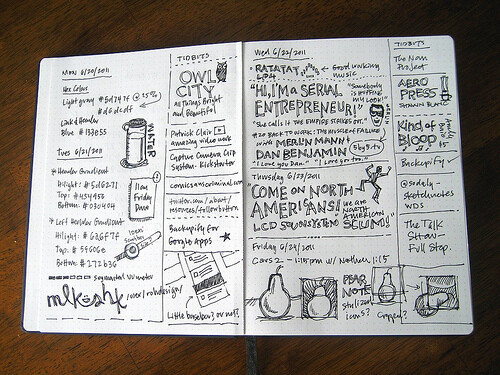 Mon 6/20/2011
Hex Colors
Light gray #5d747f @ 25%
#d6dcdf
Linked Header
Blue #133855
Tues 6/21/2011
Header Gradient
Top: #454955
Bottom: #030404
Left Header Gradient
Hilight: #636F7F
Bottom: #272636
WATER
11am
Friday
Dave
mlkshk
TIDBITS
OWL
CITY
All Things Bright
and Beautiful
Patrick Clair
amazing video work
Capture Camera Clip
System. Kickstarter
twitter.com/about/
resources/followbutton
Backupify for
Google Apps
Little baseball? or not?
Wed 6/22/2011
RATATAT
LP4
Good working
music
"HI, I'M A SERIAL
ENTREPRENEUR!"
"Somebody
is ripping
my look!"
"She calls it THE EMPIRE STRIKES OFF."
#20 BACK TO WORK: THE MUSCLE OF FAILURE
WITH MERLIN MANN &
DAN BENJAMIN
5by5.tv
"I love you Dan." "I love you too."
Thursday 6/23/2011
"COME ON NORTH
AMERICANS!
WE ARE
NORTH
AMERICAN
SCUM!"
LCD SOUNDSYSTEM
Friday 6/24/2011
Cars 2 - 1:15pm w/ Nathan 1:15
PEAR
NOTE
stylized
icons?
Cropped?
TIDBITS
The Noun
Project
AERO
PRESS
Kind of
BLOOP
Backupify
sketchnotes
WDS
The Talk
Show -
Full Stop.